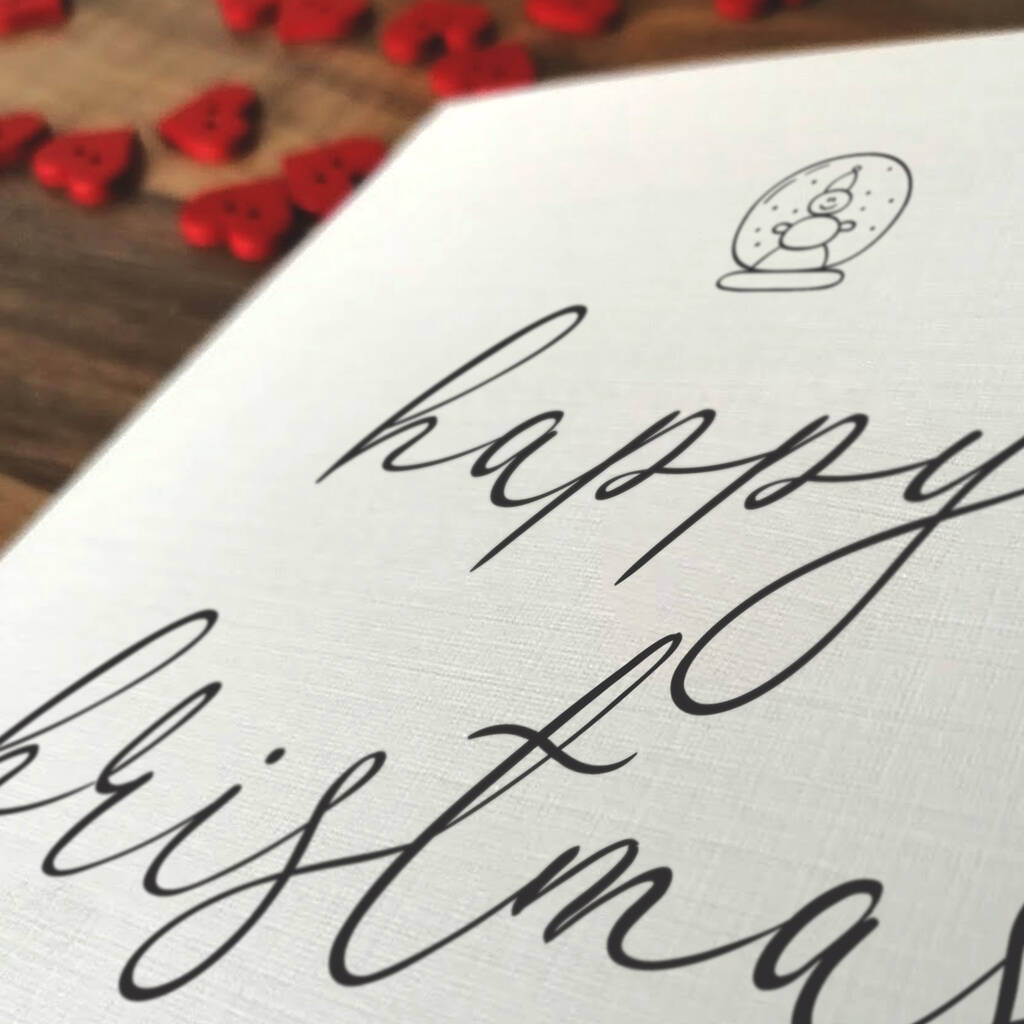 happy
hristmas